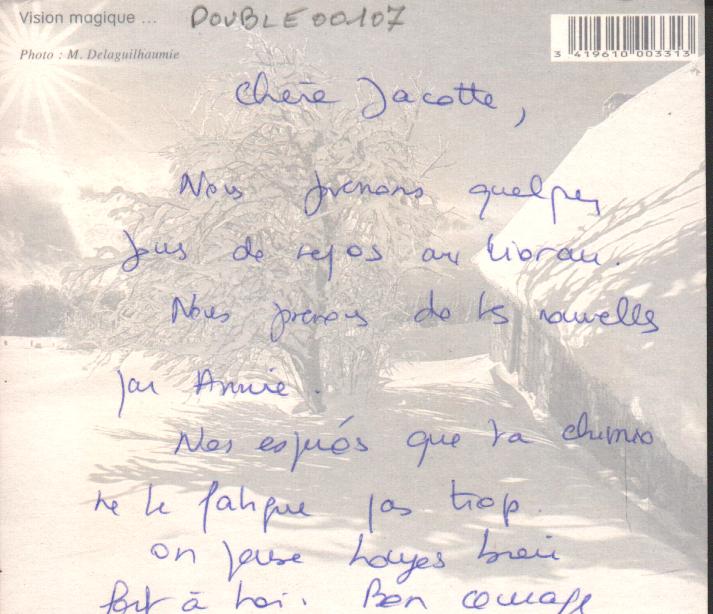 Vision magique ...
DOUBLE 00107
Photo : M. Delaguilhaumie
3 419610 003313
Chère Jacotte,
Nous prenons quelques
jours de repos au Lioran.
Nous prenons de tes nouvelles
par Annie.
Nos espérons que ta chimio
ne te fatigue pas trop.
On pense toujours bien
fort à toi. Bon courage